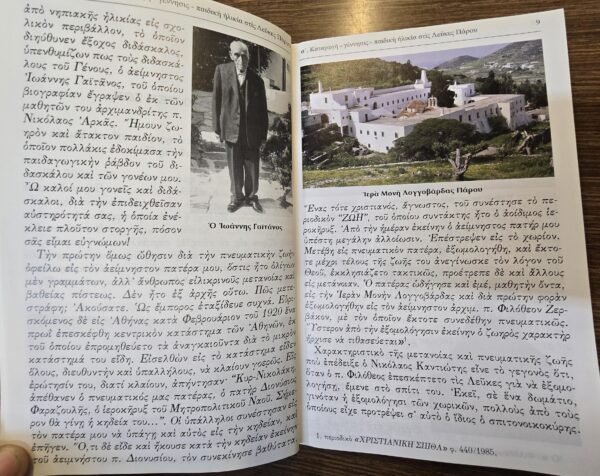 α΄. Καταγωγὴ - γέννησις - παιδικὴ ἡλικία στὶς Λεῦκες Πάρου
ἀπὸ νηπιακῆς ἡλικίας εἰς σχο-
λικὸν περιβάλλον, τὸ ὁποῖον
διηύθυνεν ἔξοχος διδάσκαλος,
ὑπενθυμίζων πως τοὺς διδασκά-
λους τοῦ Γένους, ὁ ἀείμνηστος
Ἰωάννης Γαϊτᾶνος, τοῦ ὁποίου
βιογραφίαν ἔγραψεν ὁ ἐκ τῶν
μαθητῶν του ἀρχιμανδρίτης π.
Νικόλαος Ἀρκᾶς. Ἤμουν ζωη-
ρὸν καὶ ἄτακτον παιδίον, τὸ
ὁποῖον πολλάκις ἐδοκίμασα τὴν
παιδαγωγικὴν ράβδον τοῦ διδ-
ασκάλου καὶ τῶν γονέων μου.
Ὦ καλοί μου γονεῖς καὶ διδά-
σκαλοι, διὰ τὴν ἐπιδειχθεῖσαν
αὐστηρότητά σας, ἡ ὁποία ἐνέ-
κλειε πλοῦτον στοργῆς, πόσον
σᾶς εἶμαι εὐγνώμων!
Ὁ Ἰωάννης Γαϊτάνος
Τὴν πρώτην ὅμως ὤθησιν διὰ τὴν πνευματικὴν ζωὴν
ὀφείλω εἰς τὸν ἀείμνηστον πατέρα μου, ὅστις ἦτο ὀλίγων
μὲν γραμμάτων, ἀλλ' ἄνθρωπος εἰλικρινοῦς μετανοίας καὶ
βαθείας πίστεως. Δὲν ἦτο ἐξ ἀρχῆς οὕτω. Πῶς μετε-
στράφη; Ἀκούσατε. Ὡς ἔμπορος ἐταξίδευε συχνά. Εὑρι-
σκόμενος δὲ εἰς Ἀθήνας κατὰ Φεβρουάριον τοῦ 1920 ἕνα
πρωὶ ἐπεσκέφθη κεντρικὸν κατάστημα τῶν Ἀθηνῶν, ἐκ
τοῦ ὁποίου ἐπρομηθεύετο τὰ ἀναγκαιοῦντα διὰ τὸ μικρὸν
κατάστημά του εἴδη. Εἰσελθὼν εἰς τὸ κατάστημα εἶδεν
ὅλους, διευθυντὴν καὶ ὑπαλλήλους, νὰ κλαίουν γοερῶς. Εἰς
ἐρώτησίν του, διατί κλαίουν, ἀπήντησαν· "Κυρ-Νικολάκη,
ἀπέθανεν ὁ πνευματικός μας πατέρας, ὁ πατὴρ Διονύσιος
Φαραζουλῆς, ὁ ἱεροκῆρυξ τοῦ Μητροπολιτικοῦ Ναοῦ. Σήμε-
ρον θὰ γίνῃ ἡ κηδεία του...". Οἱ ὑπάλληλοι συνέστησαν εἰς
τὸν πατέρα μου νὰ ὑπάγῃ καὶ αὐτὸς εἰς τὴν κηδείαν, καὶ
ἐπῆγεν. "Ὅ,τι δὲ εἶδε καὶ ἤκουσε κατὰ τὴν κηδείαν ἐκείνην
τοῦ ἀειμνήστου π. Διονυσίου, τὸν συνεκίνησε βαθύτατα.
9
α΄. Καταγωγὴ - γέννησις - παιδικὴ ἡλικία στὶς Λεῦκες Πάρου
Ἱερὰ Μονὴ Λογγοβάρδας Πάρου
Ἕνας τότε χριστιανός, ἄγνωστος, τοῦ συνέστησε τὸ πε-
ριοδικὸν "ΖΩΗ", τοῦ ὁποίου συντάκτης ἦτο ὁ ἀοίδιμος ἱε-
ροκῆρυξ. Ἀπὸ τὴν ἡμέραν ἐκείνην ὁ ἀείμνηστος πατήρ μου
ὑπέστη μεγάλην ἀλλοίωσιν. Ἐπέστρεψεν εἰς τὸ χωρίον.
Μετέβη εἰς πνευματικὸν πατέρα, ἐξωμολογήθη, καὶ ἔκτο-
τε μέχρι τέλους τῆς ζωῆς του ἀνεγίνωσκε τὸν λόγον τοῦ
Θεοῦ, ἐκκλησιάζετο τακτικῶς, προέτρεπε δὲ καὶ ἄλλους
εἰς μετάνοιαν. Ὁ πατέρας ὡδήγησε καὶ ἐμέ, μαθητὴν ὄντα,
εἰς τὴν Ἱερὰν Μονὴν Λογγοβάρδας καὶ διὰ πρώτην φορὰν
ἐξωμολογήθην εἰς τὸν ἀείμνηστον ἀρχιμ. π. Φιλόθεον Ζερ-
βάκον, μὲ τὸν ὁποῖον ἔκτοτε συνεδέθην πνευματικῶς.
Ὕστερον ἀπὸ τὴν ἐξομολόγησιν ἐκείνην ὁ ζωηρὸς χαρακτὴρ
ἤρχισε νὰ τιθασεύεται»¹.
Χαρακτηριστικὸ τῆς μετανοίας καὶ πνευματικῆς ζωῆς
ποὺ ἐπέδειξε ὁ Νικόλαος Καντιώτης εἶναι τὸ γεγονὸς ὅτι,
ὅταν ὁ π. Φιλόθεος ἐπεσκέπτετο τὶς Λεῦκες γιὰ νὰ ἐξομο-
λογήσῃ, ἔμενε στὸ σπίτι του. Ἐκεῖ, σὲ ἕνα δωμάτιο,
γινόταν ἡ ἐξομολόγησι τῶν χωρικῶν, πολλοὺς ἀπὸ τοὺς
ὁποίους εἶχε προτρέψει σ' αὐτὸ ὁ ἴδιος ὁ σπιτονοικοκύρης.
1. περιοδικὸ «ΧΡΙΣΤΙΑΝΙΚΗ ΣΠΙΘΑ» φ. 440/1985.